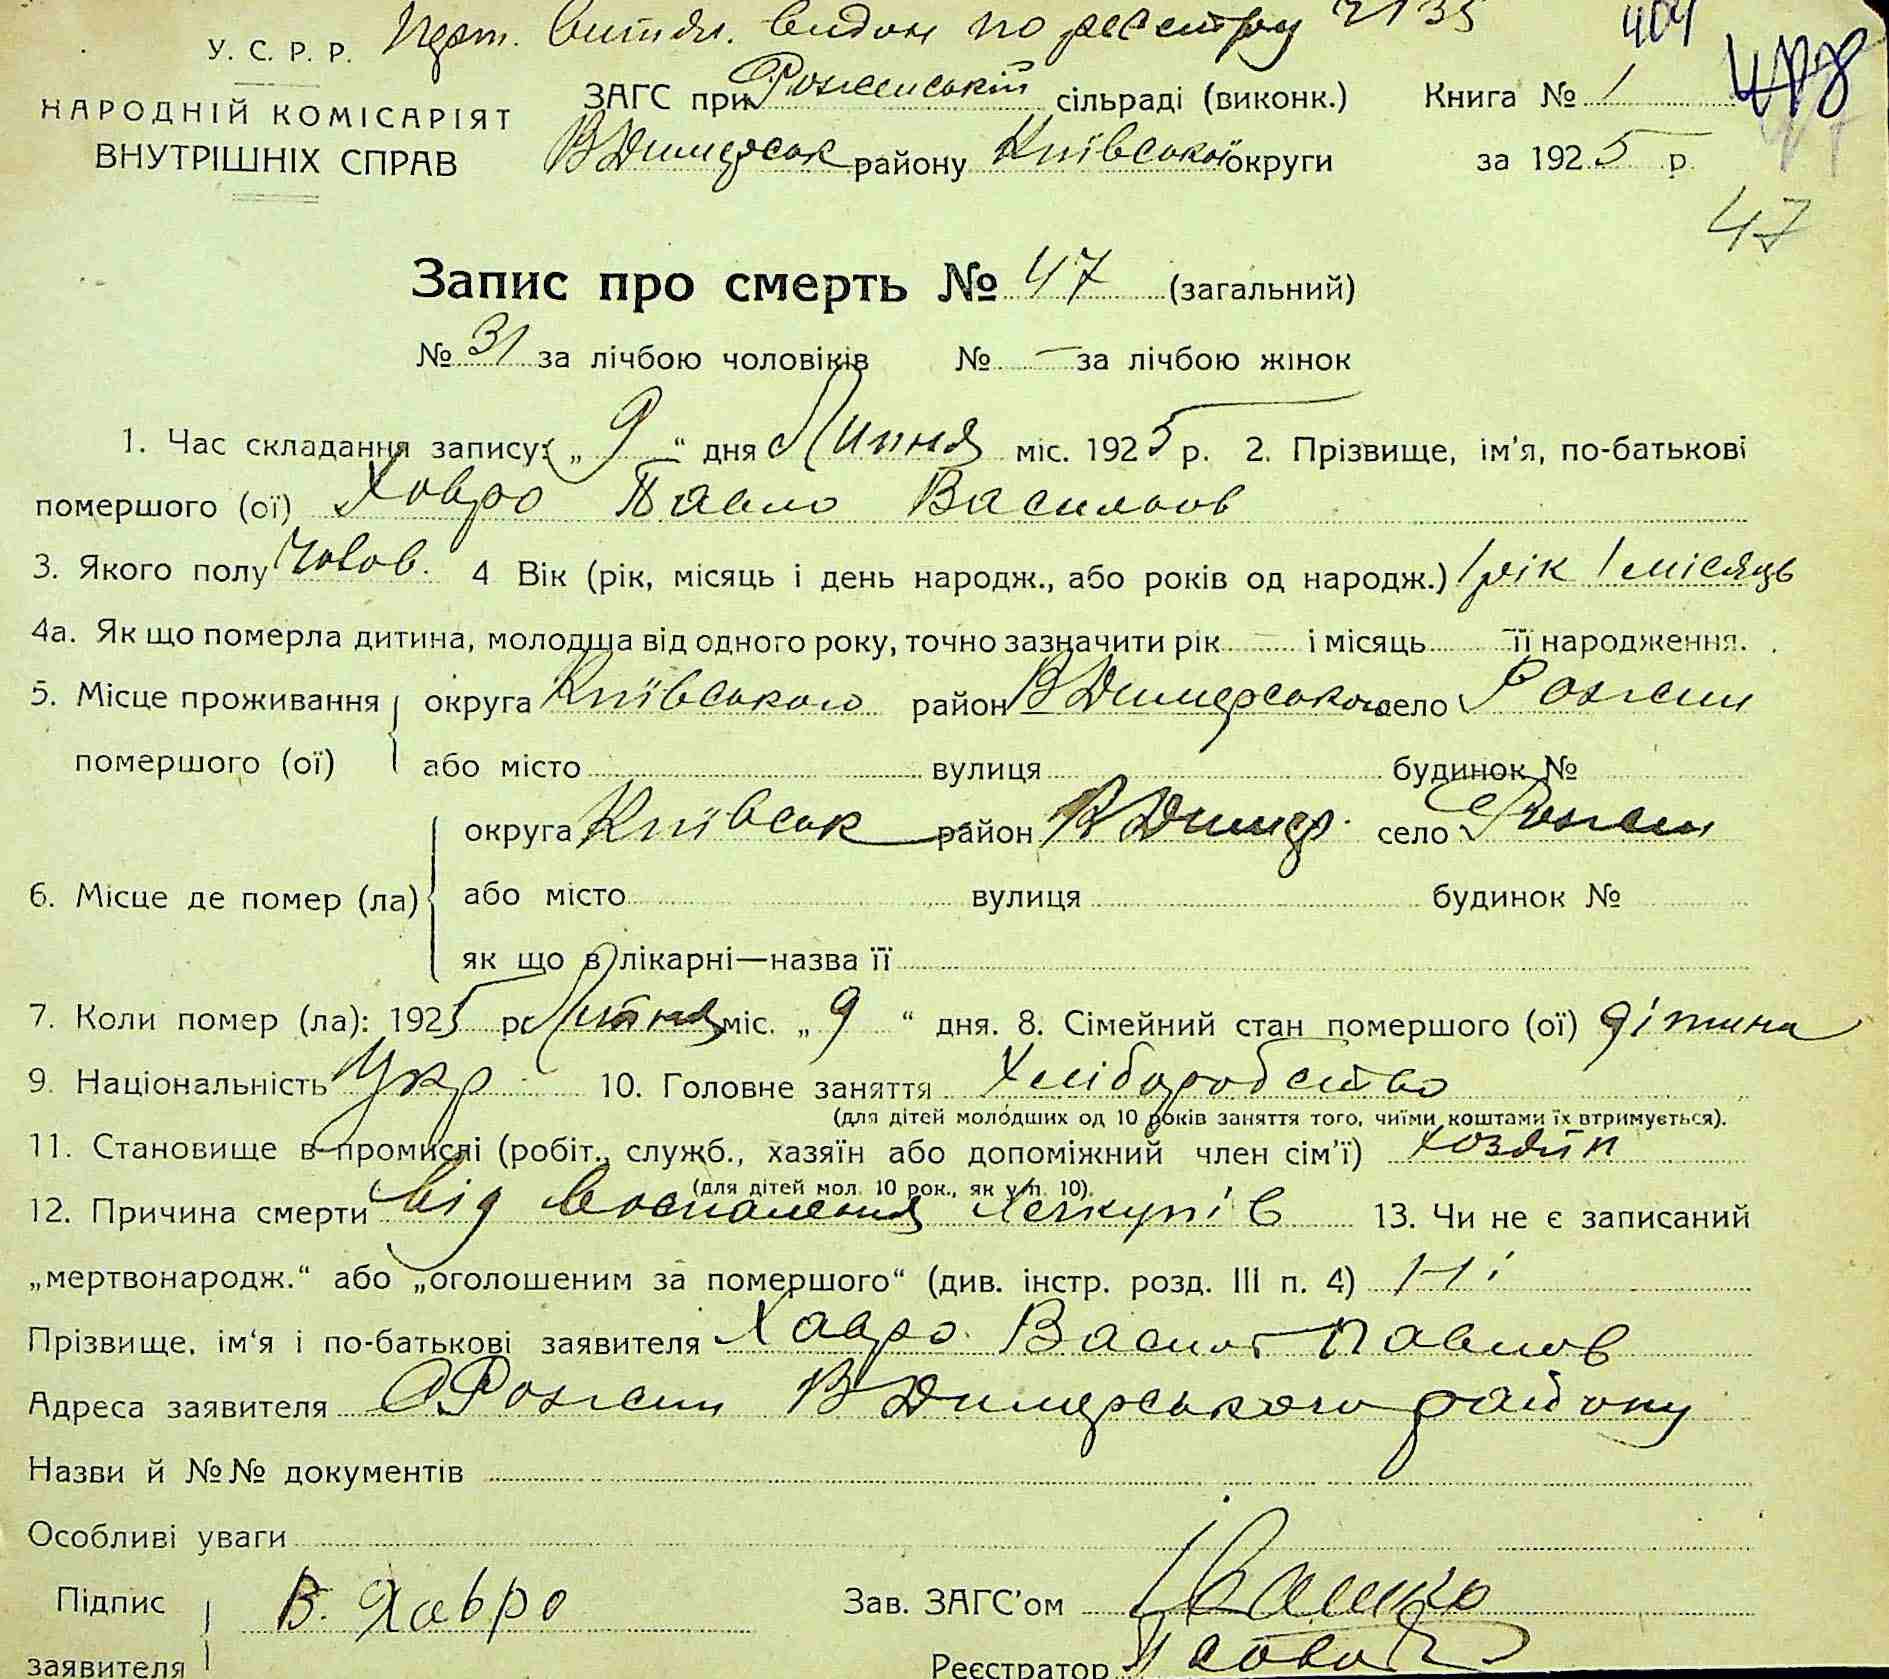 витяг. видан по реєстру 2135 404
У. С. Р. Р.
НАРОДНІЙ КОМІСАРІЯТ
ВНУТРІШНІХ СПРАВ
ЗАГС при Рожнській сільраді (виконк.) Книга № 1
В Димерськ району Київської округи за 1925 р.
47
Запис про смерть № 47 (загальний)
№ 31 за лічбою чоловіків № — за лічбою жінок
1. Час складання запису: „ 9 “ дня Липня міс. 1925 р. 2. Прізвище, ім'я, по-батькові
помершого (ої) Ховро Павло Васильов
3. Якого полу чолов. 4 Вік (рік, місяць і день народж., або років од народж.) 1 рік 1 місяць
4а. Як що померла дитина, молодша від одного року, точно зазначити рік — і місяць — її народження.
5. Місце проживання округа Київського район В Димерського село Рожни
помершого (ої) або місто вулиця будинок №
округа Київськ район В Димер. село Рожни
6. Місце де помер (ла) або місто вулиця будинок №
як що в лікарні—назва її
7. Коли помер (ла): 1925 р. Липня міс. „ 9 “ дня. 8. Сімейний стан помершого (ої) дітина
9. Національність Укр 10. Головне заняття Хліборобство
(для дітей молодших од 10 років заняття того, чиїми коштами їх втримується).
11. Становище в промислі (робіт., служб., хазяїн або допоміжний член сім'ї) хозяїн
(для дітей мол. 10 рок., як у п. 10).
12. Причина смерти від воспаления 13. Чи не є записаний
„мертвонародж.“ або „оголошеним за помершого“ (див. інстр. розд. III п. 4) Ні
Прізвище, ім'я і по-батькові заявителя Хавро Васил Павлов
Адреса заявителя С Рожни В Димерського району
Назви й №№ документів
Особливі уваги
Підпис В. Хавро Зав. ЗАГС'ом
заявителя Реєстратор